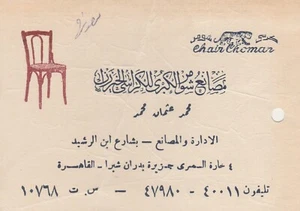 كرسي شومر
Chair Chomar
مصانع شومر الكبرى للكراسى الخيزران
محمد عثمان محمد
الادارة والمصانع — بشارع ابن الرشيد
٤ حارة السمرى جزيرة بدران شبرا — القاهرة
تليفون ٤٠٠١١ — ٤٧٩٨٠ — س . ت ١٠٧٦٨